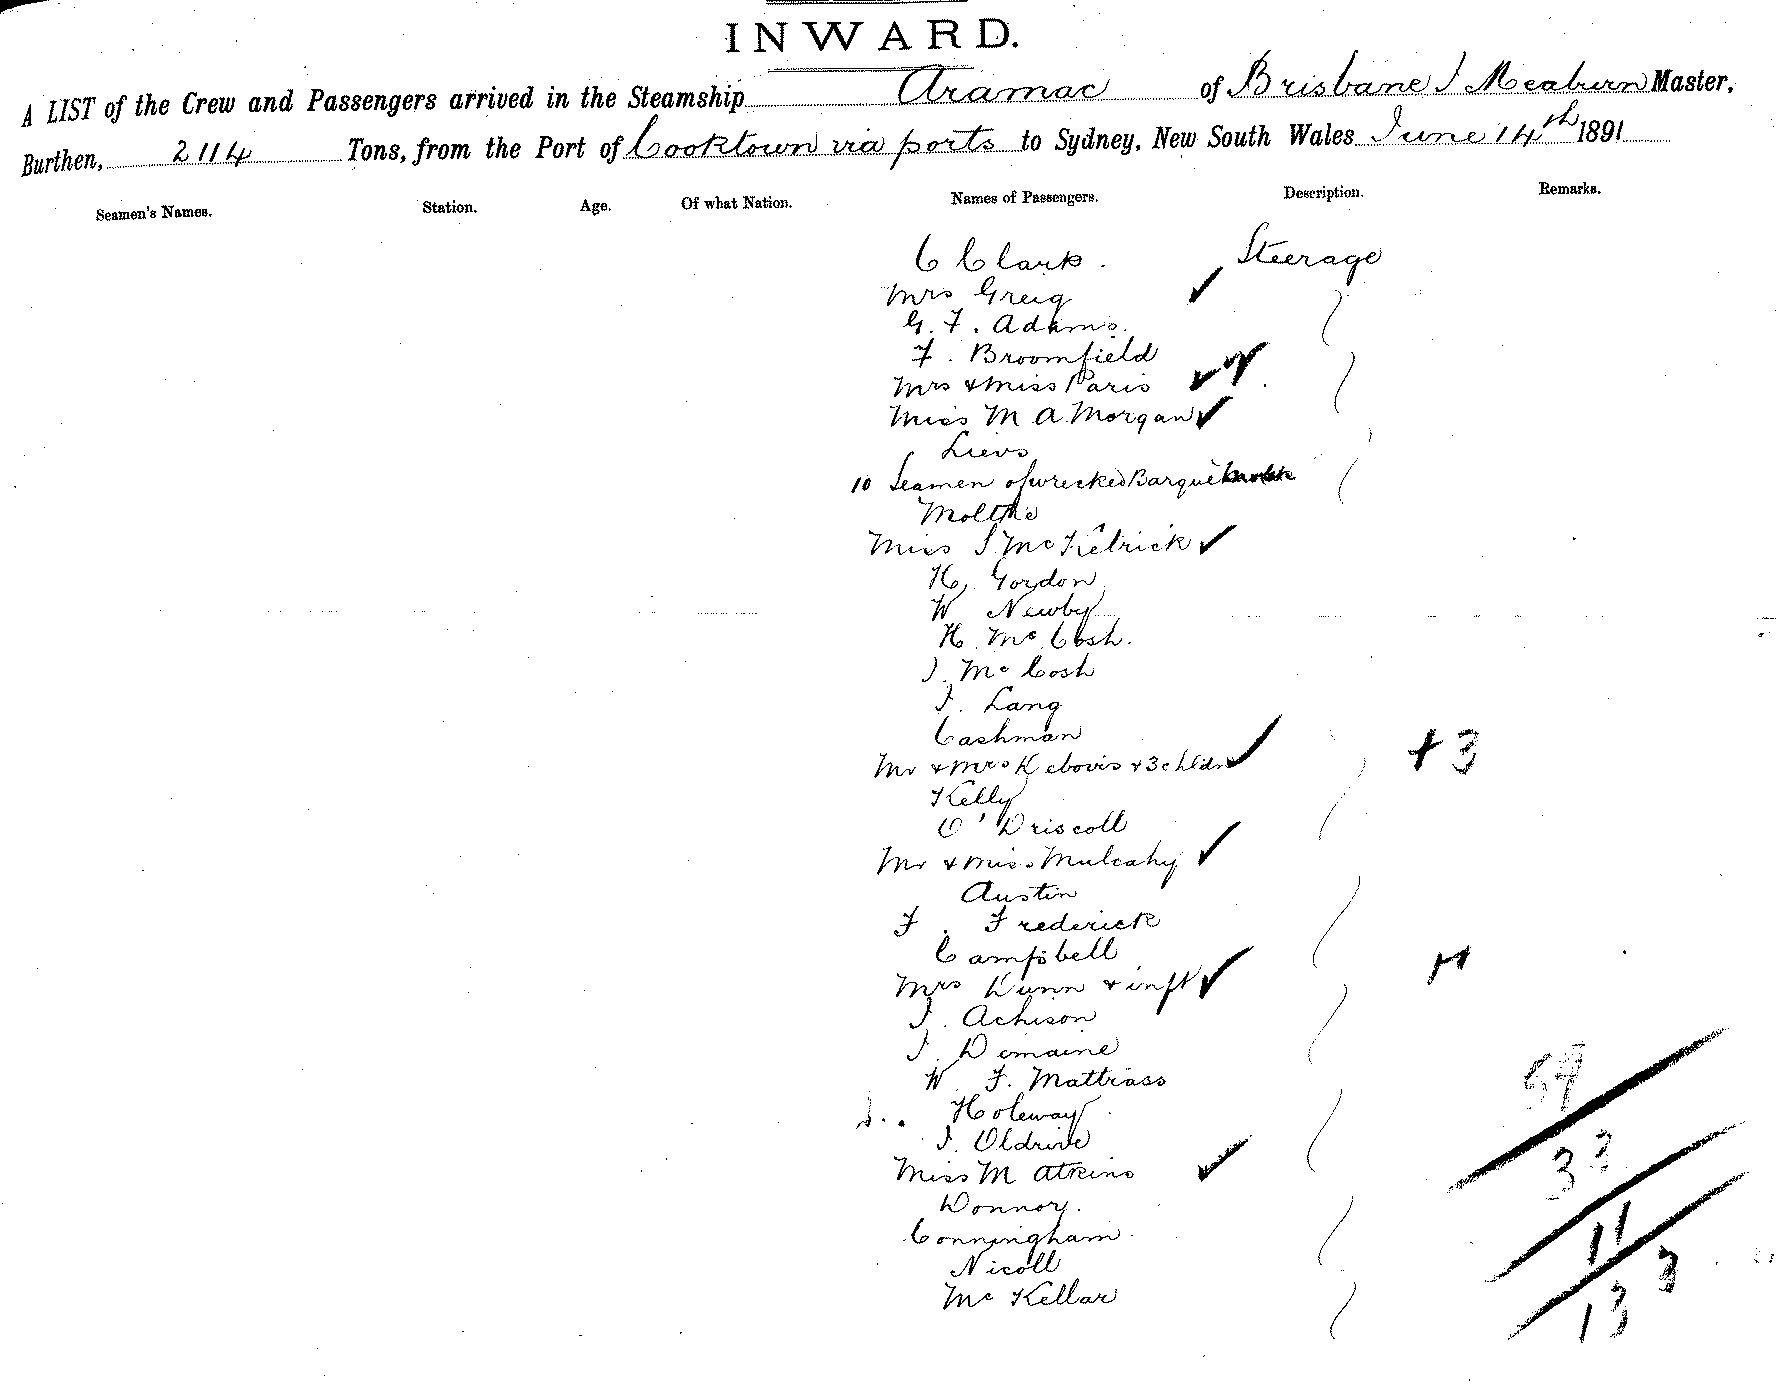 INWARD.
A LIST of the Crew and Passengers arrived in the Steamship Aramac of Brisbane J Meaburn Master,
Burthen, 2114 Tons, from the Port of Cooktown via ports to Sydney, New South Wales June 14th 1891
Seamen's Names. Station. Age. Of what Nation. Names of Passengers. Description. Remarks.
C Clark. Steerage
Mrs Greig
G. F. Adams.
F. Broomfield
Mrs & Miss Paris
Miss M A Morgan
Lievs
10 Seamen of wrecked Barque
Moltke
Miss J McKetrick
H. Gordon
W Newby
H. Mc Cosh.
J. Mc Cosh
J. Lang
Cashman
Mr & Mrs Kebovis & 3 chldn + 3
Kelly
O' Driscoll
Mr & Miss Mulcahy
Austin
F. Frederick
Campbell
Mrs Dunn & inft
J. Achison
J. Demaine
W. F. Mattrass
Holeway
J. Oldrive
Miss M Atkins
Donnoy.
Conningham
Nicoll
Mc Kellar
54
33
11
3
13